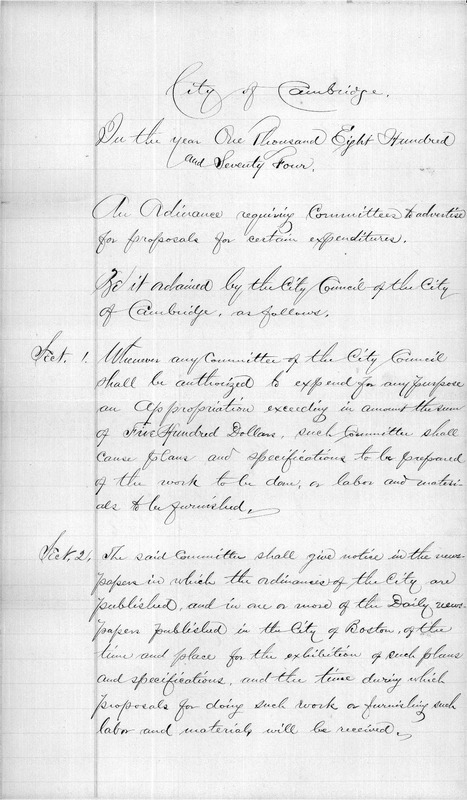 City of Cambridge.
In the year One Thousand Eight Hundred
and Seventy Four.
An Ordinance requiring Committees to advertise
for proposals for certain expenditures.
Be it ordained by the City Council of the City
of Cambridge, as follows.
Sect. 1. Whenever any Committee of the City Council
shall be authorized to expend for any purpose
an Appropriation exceeding in amount the sum
of Five Hundred Dollars, such Committee shall
cause plans and specifications to be prepared
of the work to be done, or labor and materi-
als to be furnished.
Sect. 2. The said Committee shall give notice in the news-
papers in which the ordinances of the City are
published, and in one or more of the Daily news-
papers published in the City of Boston, of the
time and place for the exhibition of such plans
and specifications, and the time during which
proposals for doing such work or furnishing such
labor and materials will be received.